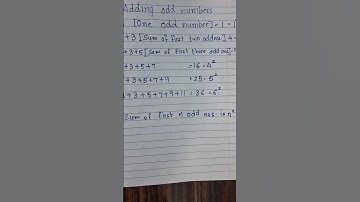 Adding odd numbers
[One odd number] = 1 =
+3 [Sum of first two odd nos] 4 =
+3+5 [Sum of first three odd nos] =
+3+5+7 = 16 = 4²
+3+5+7+9 = 25 = 5²
+3+5+7+9+11 = 36 = 6²
Sum of first n odd nos. is n²